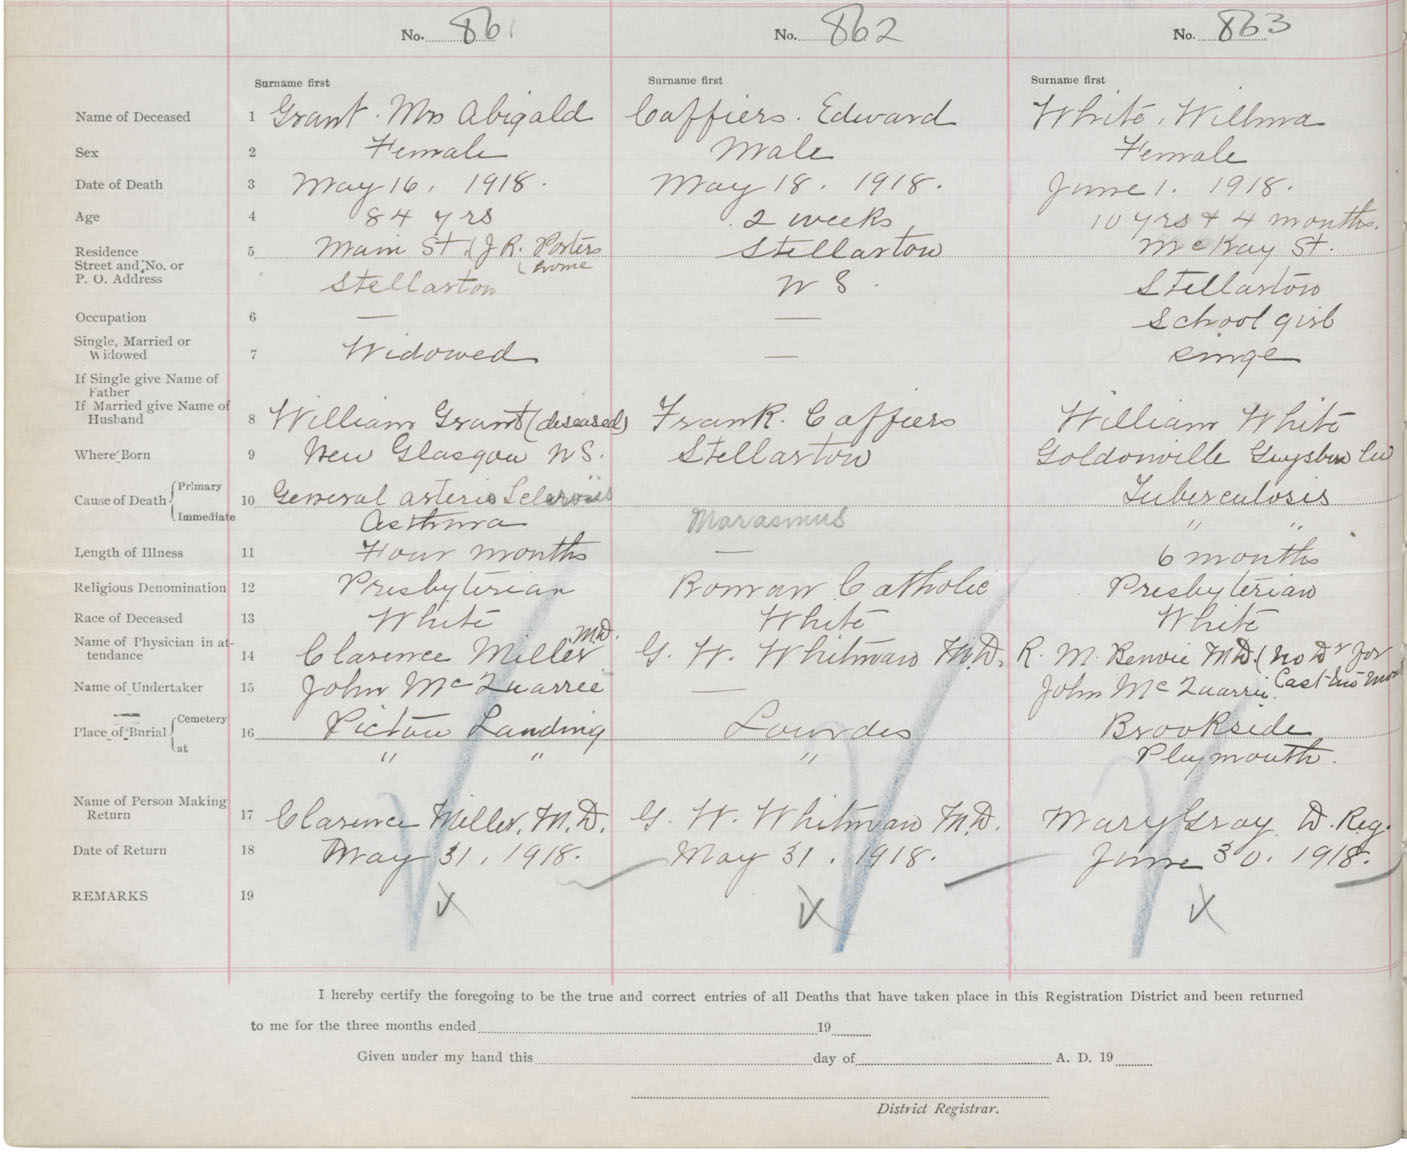 No. 861 No. 862 No. 863
Surname first Surname first Surname first
Name of Deceased 1 Grant. Mrs Abigald Caffiers. Edward White, Wilma
Sex 2 Female Male Female
Date of Death 3 May 16, 1918. May 18. 1918. June 1. 1918.
Age 4 84 yrs 2 weeks 10 yrs + 4 months.
Residence 5 Main St (J R. Porters Stellarton McKay St.
Street and No. or home
P. O. Address Stellarton N S. Stellarton
Occupation 6 — — School girl
Single, Married or
Widowed 7 Widowed — Singe
If Single give Name of
Father
If Married give Name of
Husband 8 William Grant (diseased) Frank. Caffiers William White
Where Born 9 New Glasgow N S. Stellarton Goldonville Guysboro Co
Cause of Death Primary 10 General arterio Sclerosis Tuberculosis
Immediate Asthma Marasmus " "
Length of Illness 11 Four months — 6 months
Religious Denomination 12 Presbyterian Roman Catholic Presbyterian
Race of Deceased 13 White White White
Name of Physician in at-
tendance 14 Clarence Miller M.D. G. W. Whitman M.D. R. M. Benvie M.D. (no Dr for
Name of Undertaker 15 John McQuarrie — John McQuarrie. Last
Place of Burial Cemetery 16 Pictou Landing Lourdes Brookside
at " " " Plymouth.
Name of Person Making
Return 17 Clarence Miller, M.D. G. W. Whitman M.D. Mary Gray D. Reg.
Date of Return 18 May 31, 1918. May 31, 1918. June 30, 1918.
REMARKS 19
I hereby certify the foregoing to be the true and correct entries of all Deaths that have taken place in this Registration District and been returned
to me for the three months ended 19
Given under my hand this day of A. D. 19
District Registrar.